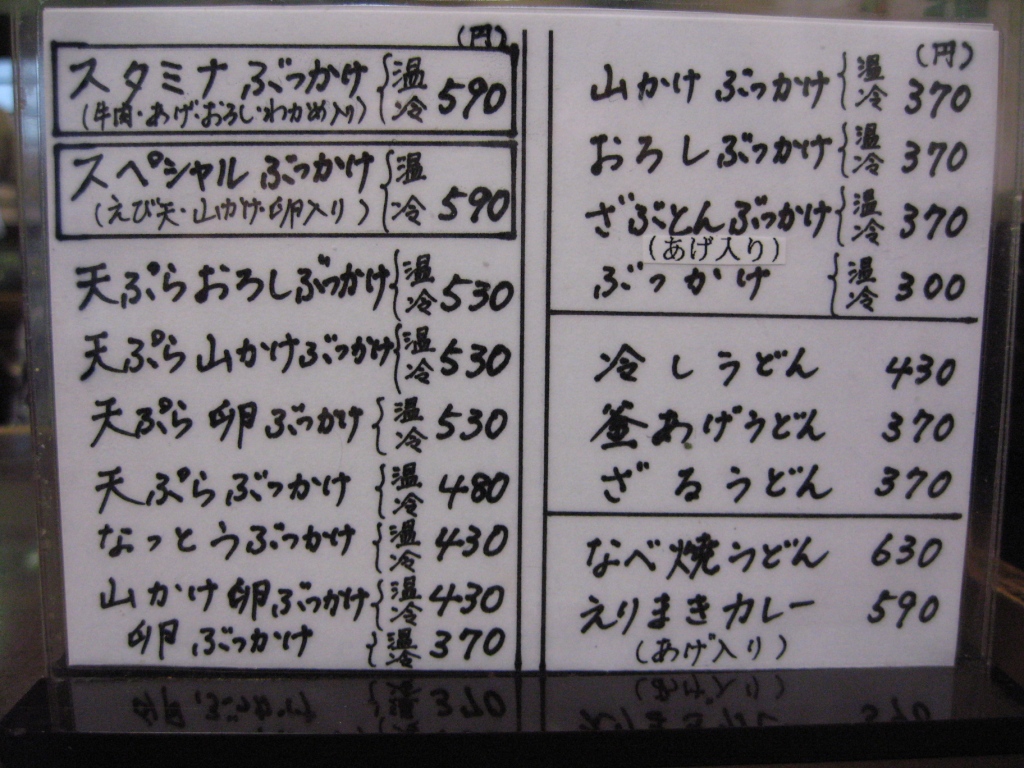 (円)
スタミナ ぶっかけ 温 冷 590
(牛肉・あげ・おろし・わかめ入り)
スペシャル ぶっかけ 温 冷 590
(えび天・山かけ・卵入り)
天ぷらおろしぶっかけ 温 冷 530
天ぷら山かけぶっかけ 温 冷 530
天ぷら卵ぶっかけ 温 冷 530
天ぷらぶっかけ 温 冷 480
なっとうぶっかけ 温 冷 430
山かけ卵ぶっかけ 温 冷 430
卵ぶっかけ 温 冷 370
(円)
山かけぶっかけ 温 冷 370
おろしぶっかけ 温 冷 370
ざぶとんぶっかけ 温 冷 370
(あげ入り)
ぶっかけ 温 冷 300
冷しうどん 430
釜あげうどん 370
ざるうどん 370
なべ焼うどん 630
えりまきカレー 590
(あげ入り)